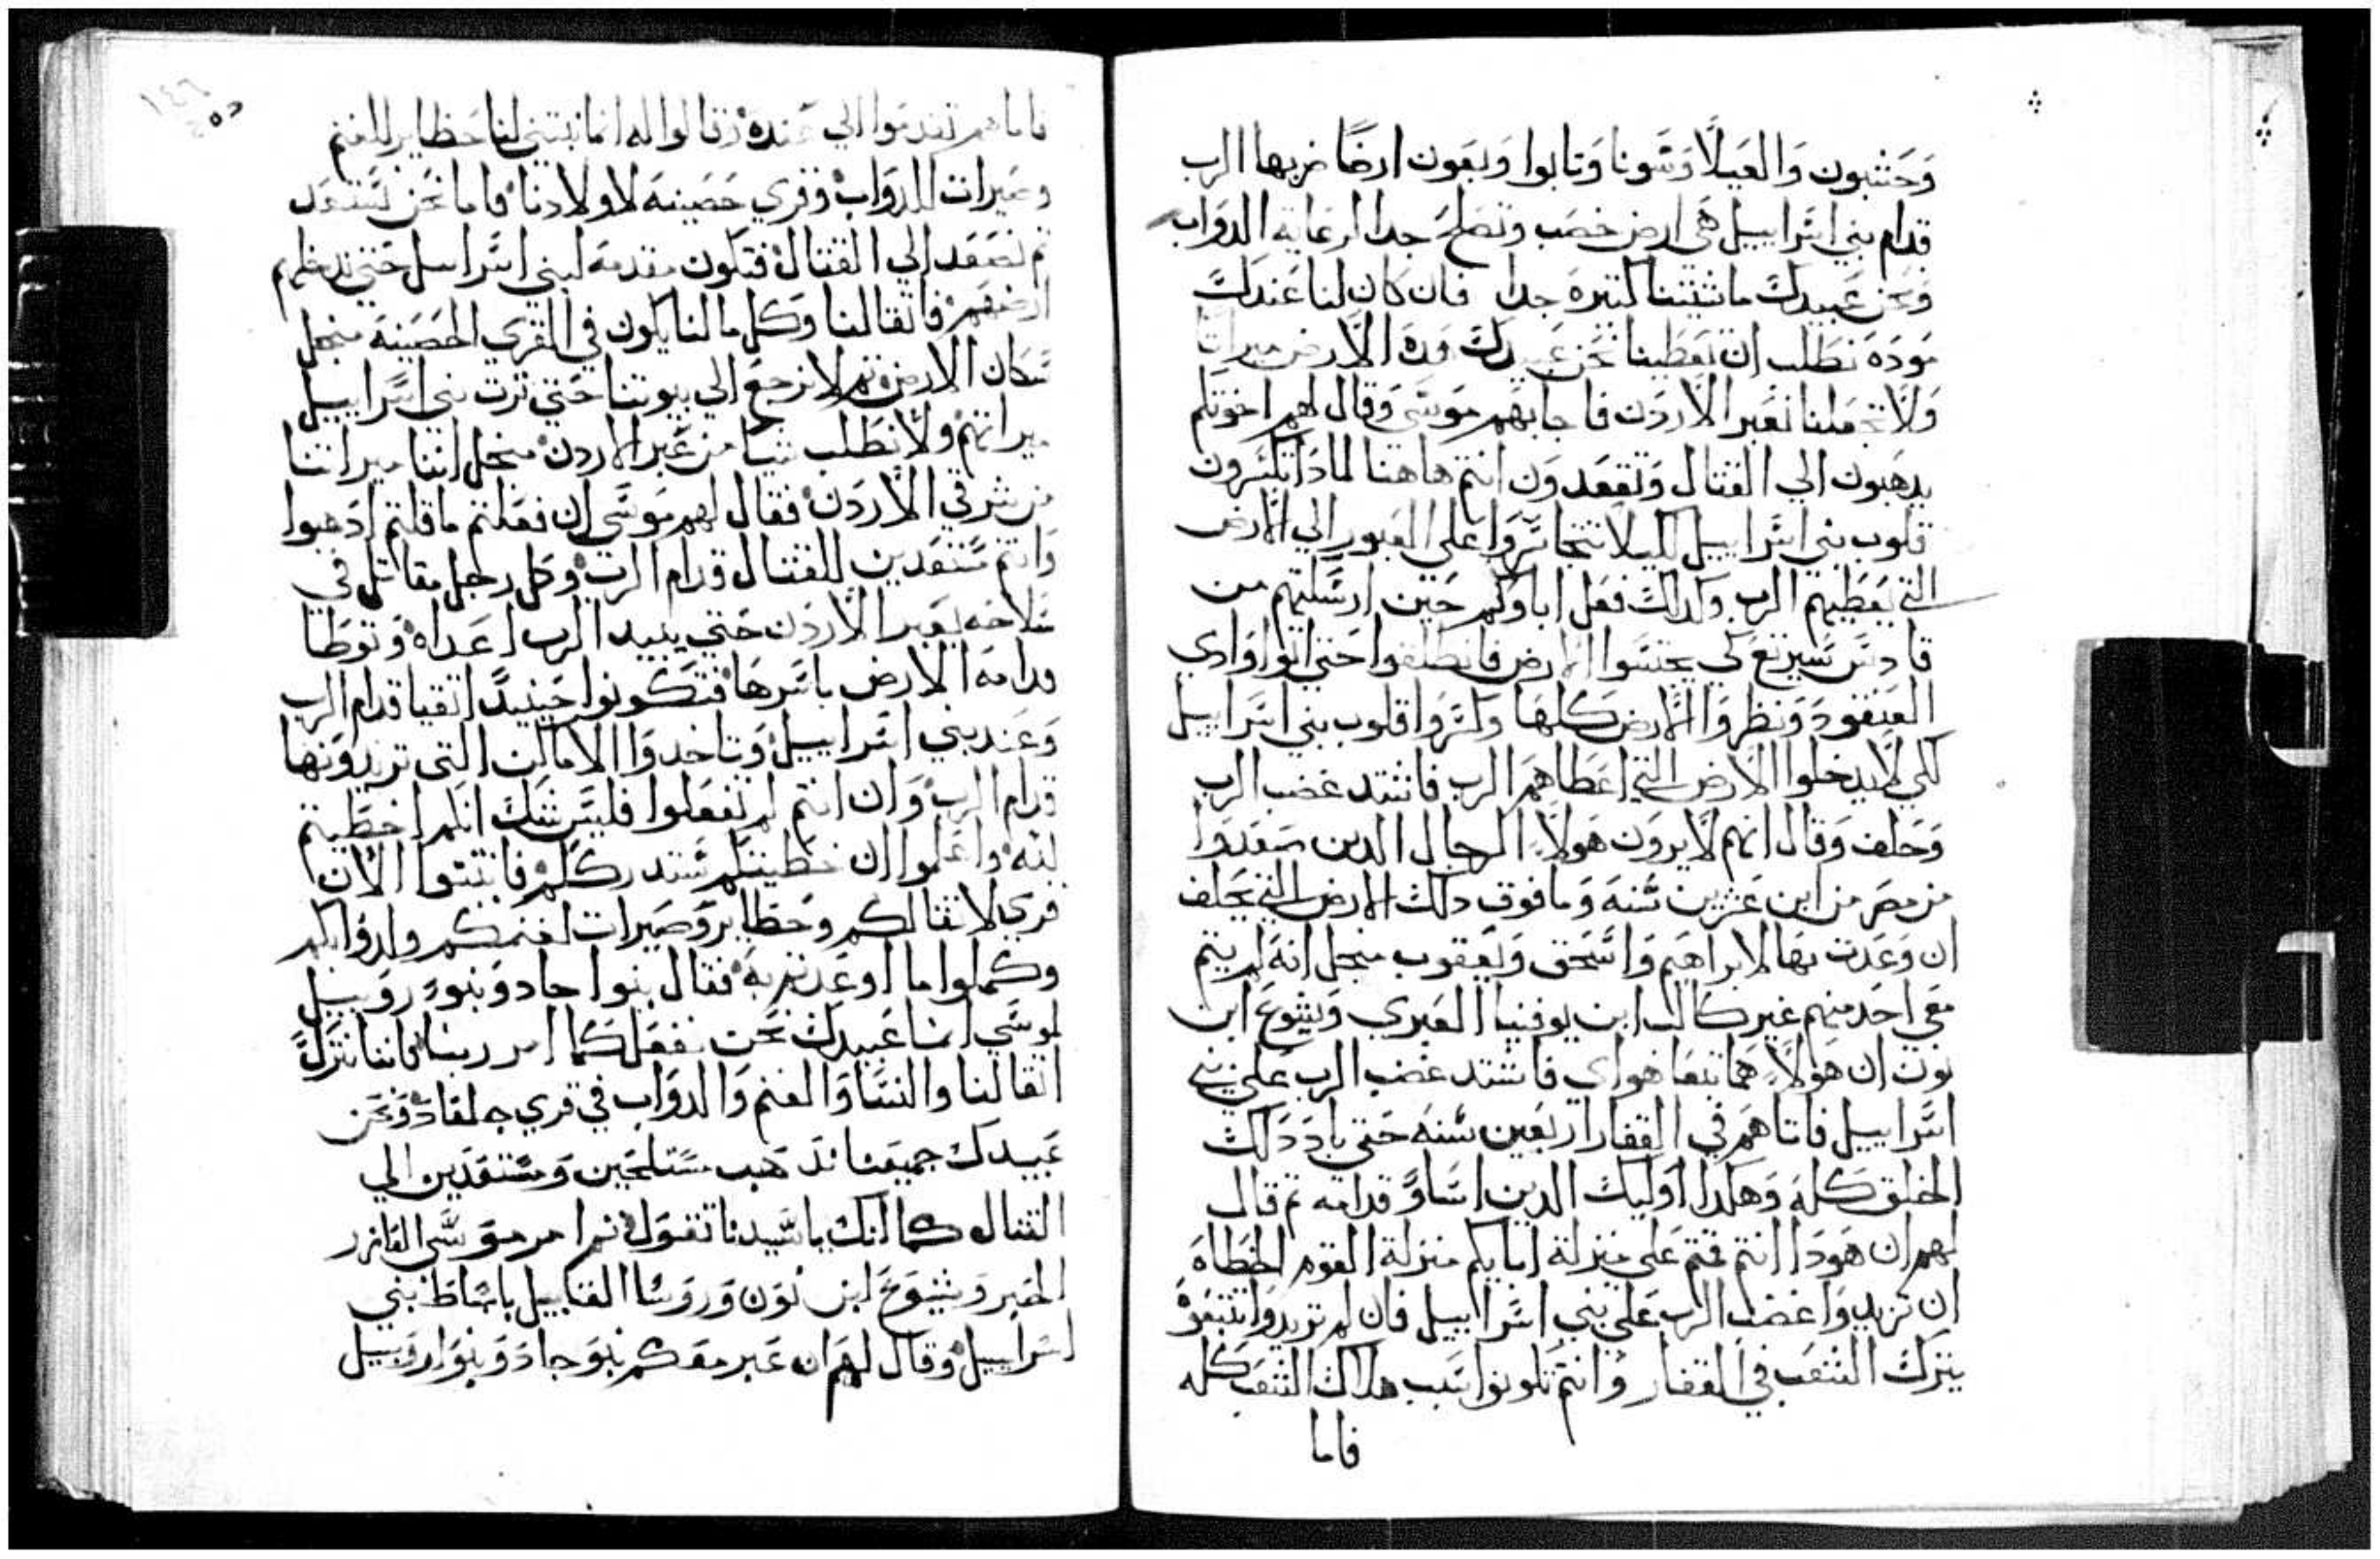 وحشبون والعيلا وسونا وتابوا وبعون ارضا ضربها الرب
قدام بني اسراييل هي ارض خصب وتصلح جدا لرعاية الدواب
ونحن عبيدك ماشيتنا كتيره جدا فان كان لنا عندك
موده نطلب ان تعطينا نحن عبيدك هده الارض ميراتا
ولا تجعلنا نعبر الاردن فاجابهم موسي وقال لهم اخوتكم
يدهبون الي القتال وتقعدون انتم هاهنا لمادا تكسرون
قلوب بني اسراييل لكيلا يتجاسروا علي العبور الي الارض
التي يعطيهم الرب وكدلك فعل اباوكم حين ارسلتهم من
قادس برنيع لكي يجتسوا الارض فانطلقوا حتي اتوا وادي
العنقود ونظروا الارض كلها وكسروا قلوب بني اسراييل
لكي لا يدخلوا الارض التي اعطاهم الرب فاشتد غضب الرب
وحلف وقال انهم لا يرون هولاء الرجال الدين صعدوا
من مصر من ابن عشرين سنه وما فوق دلك الارض التي بحلف
ان وعدت بها لابراهيم واسحق ويعقوب منجل انه لم يتم
معي احد منهم غير كالب ابن يوفنيا العبري ويشوع ابن
نون ان هولاء هما تبعا هواي فاشتد غضب الرب علي بني
اسراييل فاتاههم في القفار اربعين سنه حتي باد دلك
الخلق كله وهكدا اوليك الدين اساو قدامه تم قال
لهم ان هودا انتم قمتم علي منزلة ابايكم منزلة القوم الخطاه
ان تزيدوا غضب الرب علي بني اسراييل فان لم تريدوا تتبعوه
يترك الشعب في القفار وانتم تكونوا سبب هلاك الشعب كله
فاما
فاما هم تقدموا الي عنده وقالوا له انما نبتني لنا حظاير للغنم
وصيرات للدواب وقري حصينه لاولادنا فاما نحن نستعد
تم نصعد الي القتال فتكون مقدمه لبني اسراييل حتي ندخلهم
ارضهم فاتقالنا وكل ما لنا يكون في القري الحصينه منجل
سكان الارض تم لا نرجع الي بيوتنا حتي ترت بني اسراييل
ميراتهم ولا نطلب شيا من عبر الاردن منجل اننا ميراتنا
من شرقي الاردن فقال لهم موسي ان فعلتم ما قلتم ادهبوا
وانتم مستعدين للقتال قدام الرب وكل رجل مقاتل في
سلاحه يعبر الاردن حتي يبيد الرب اعداه وتوطا
قدامه الارض باسرها فتكونوا حينيد اتقيا قدام الرب
وعند بني اسراييل وتاخدوا الاماكن التي تريدونها
قدام الرب وان انتم لم تفعلوا فليس شك انكم اخطيتم
لله واعلموا ان خطيتكم ستدرككم فابتنوا الان
قري لاتقالكم وحظاير وصيرات لغنمكم ولدوابكم
وكملوا ما اوعدتم به فقال بنوا جاد وبنو روبيل
لموسي انما عبيدك نحن نفعل كما امر ربنا فاننا نترك
اتقالنا والنسا والغنم والدواب في قري جلعاد ونحن
عبيدك جميعنا ندهب مستلحين ومستعدين الي
القتال كما انك يا سيدنا تقول تم امر موسي العازر
الحبر ويشوع ابن نون وروسا القبابيل باسباط بني
اسراييل وقال لهم ان عبر معكم بنو جاد وبنوا روبيل